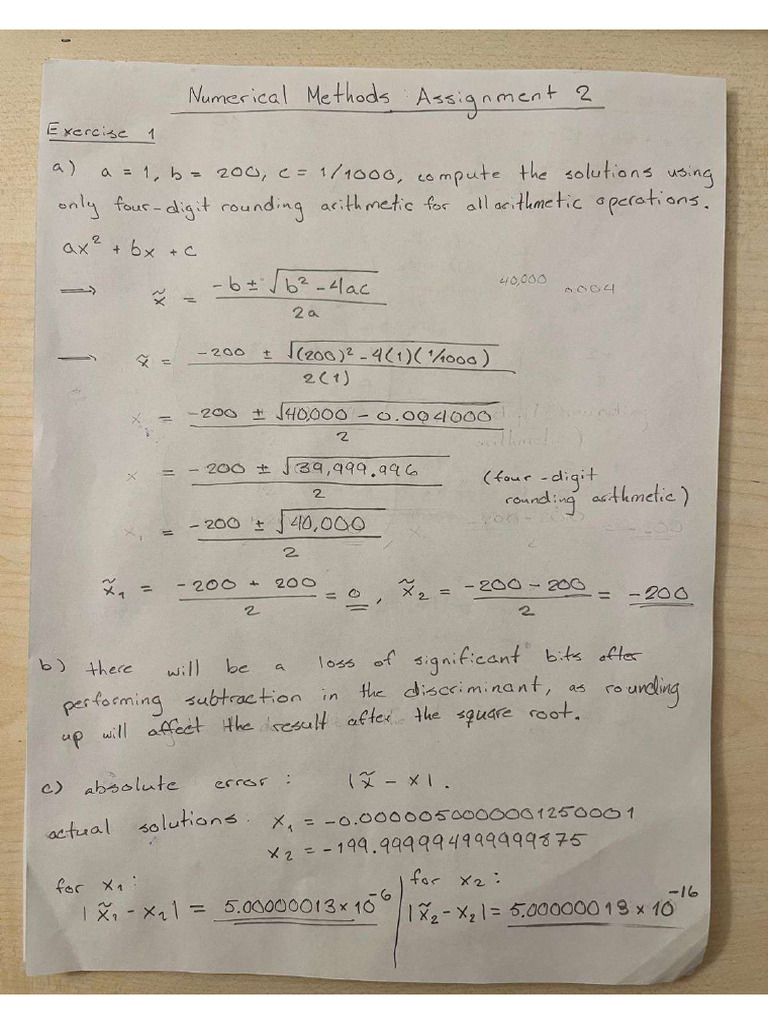 Numerical Methods Assignment 2
Exercise 1
a) a = 1, b = 200, c = 1/1000, compute the solutions using
only four-digit rounding arithmetic for all arithmetic operations.
ax² + bx + c
⟹ x̃ = (-b ± √(b² - 4ac)) / 2a
40,000 0.004
⟹ x̃ = (-200 ± √((200)² - 4(1)(1/1000))) / 2(1)
x = (-200 ± √(40,000 - 0.004000)) / 2
x = (-200 ± √(39,999.996)) / 2 (four-digit
rounding arithmetic)
x₁ = (-200 ± √(40,000)) / 2
x̃₁ = (-200 + 200) / 2 = 0, x̃₂ = (-200 - 200) / 2 = -200
b) there will be a loss of significant bits after
performing subtraction in the discriminant, as rounding
up will affect the result after the square root.
c) absolute error : |x̃ - x|.
actual solutions: x₁ = -0.0000050000001250001
x₂ = -199.9999949999999875
for x₁:
|x̃₁ - x₂| = 5.00000013 × 10⁻⁶
for x₂:
|x̃₂ - x₂| = 5.00000013 × 10⁻¹⁶